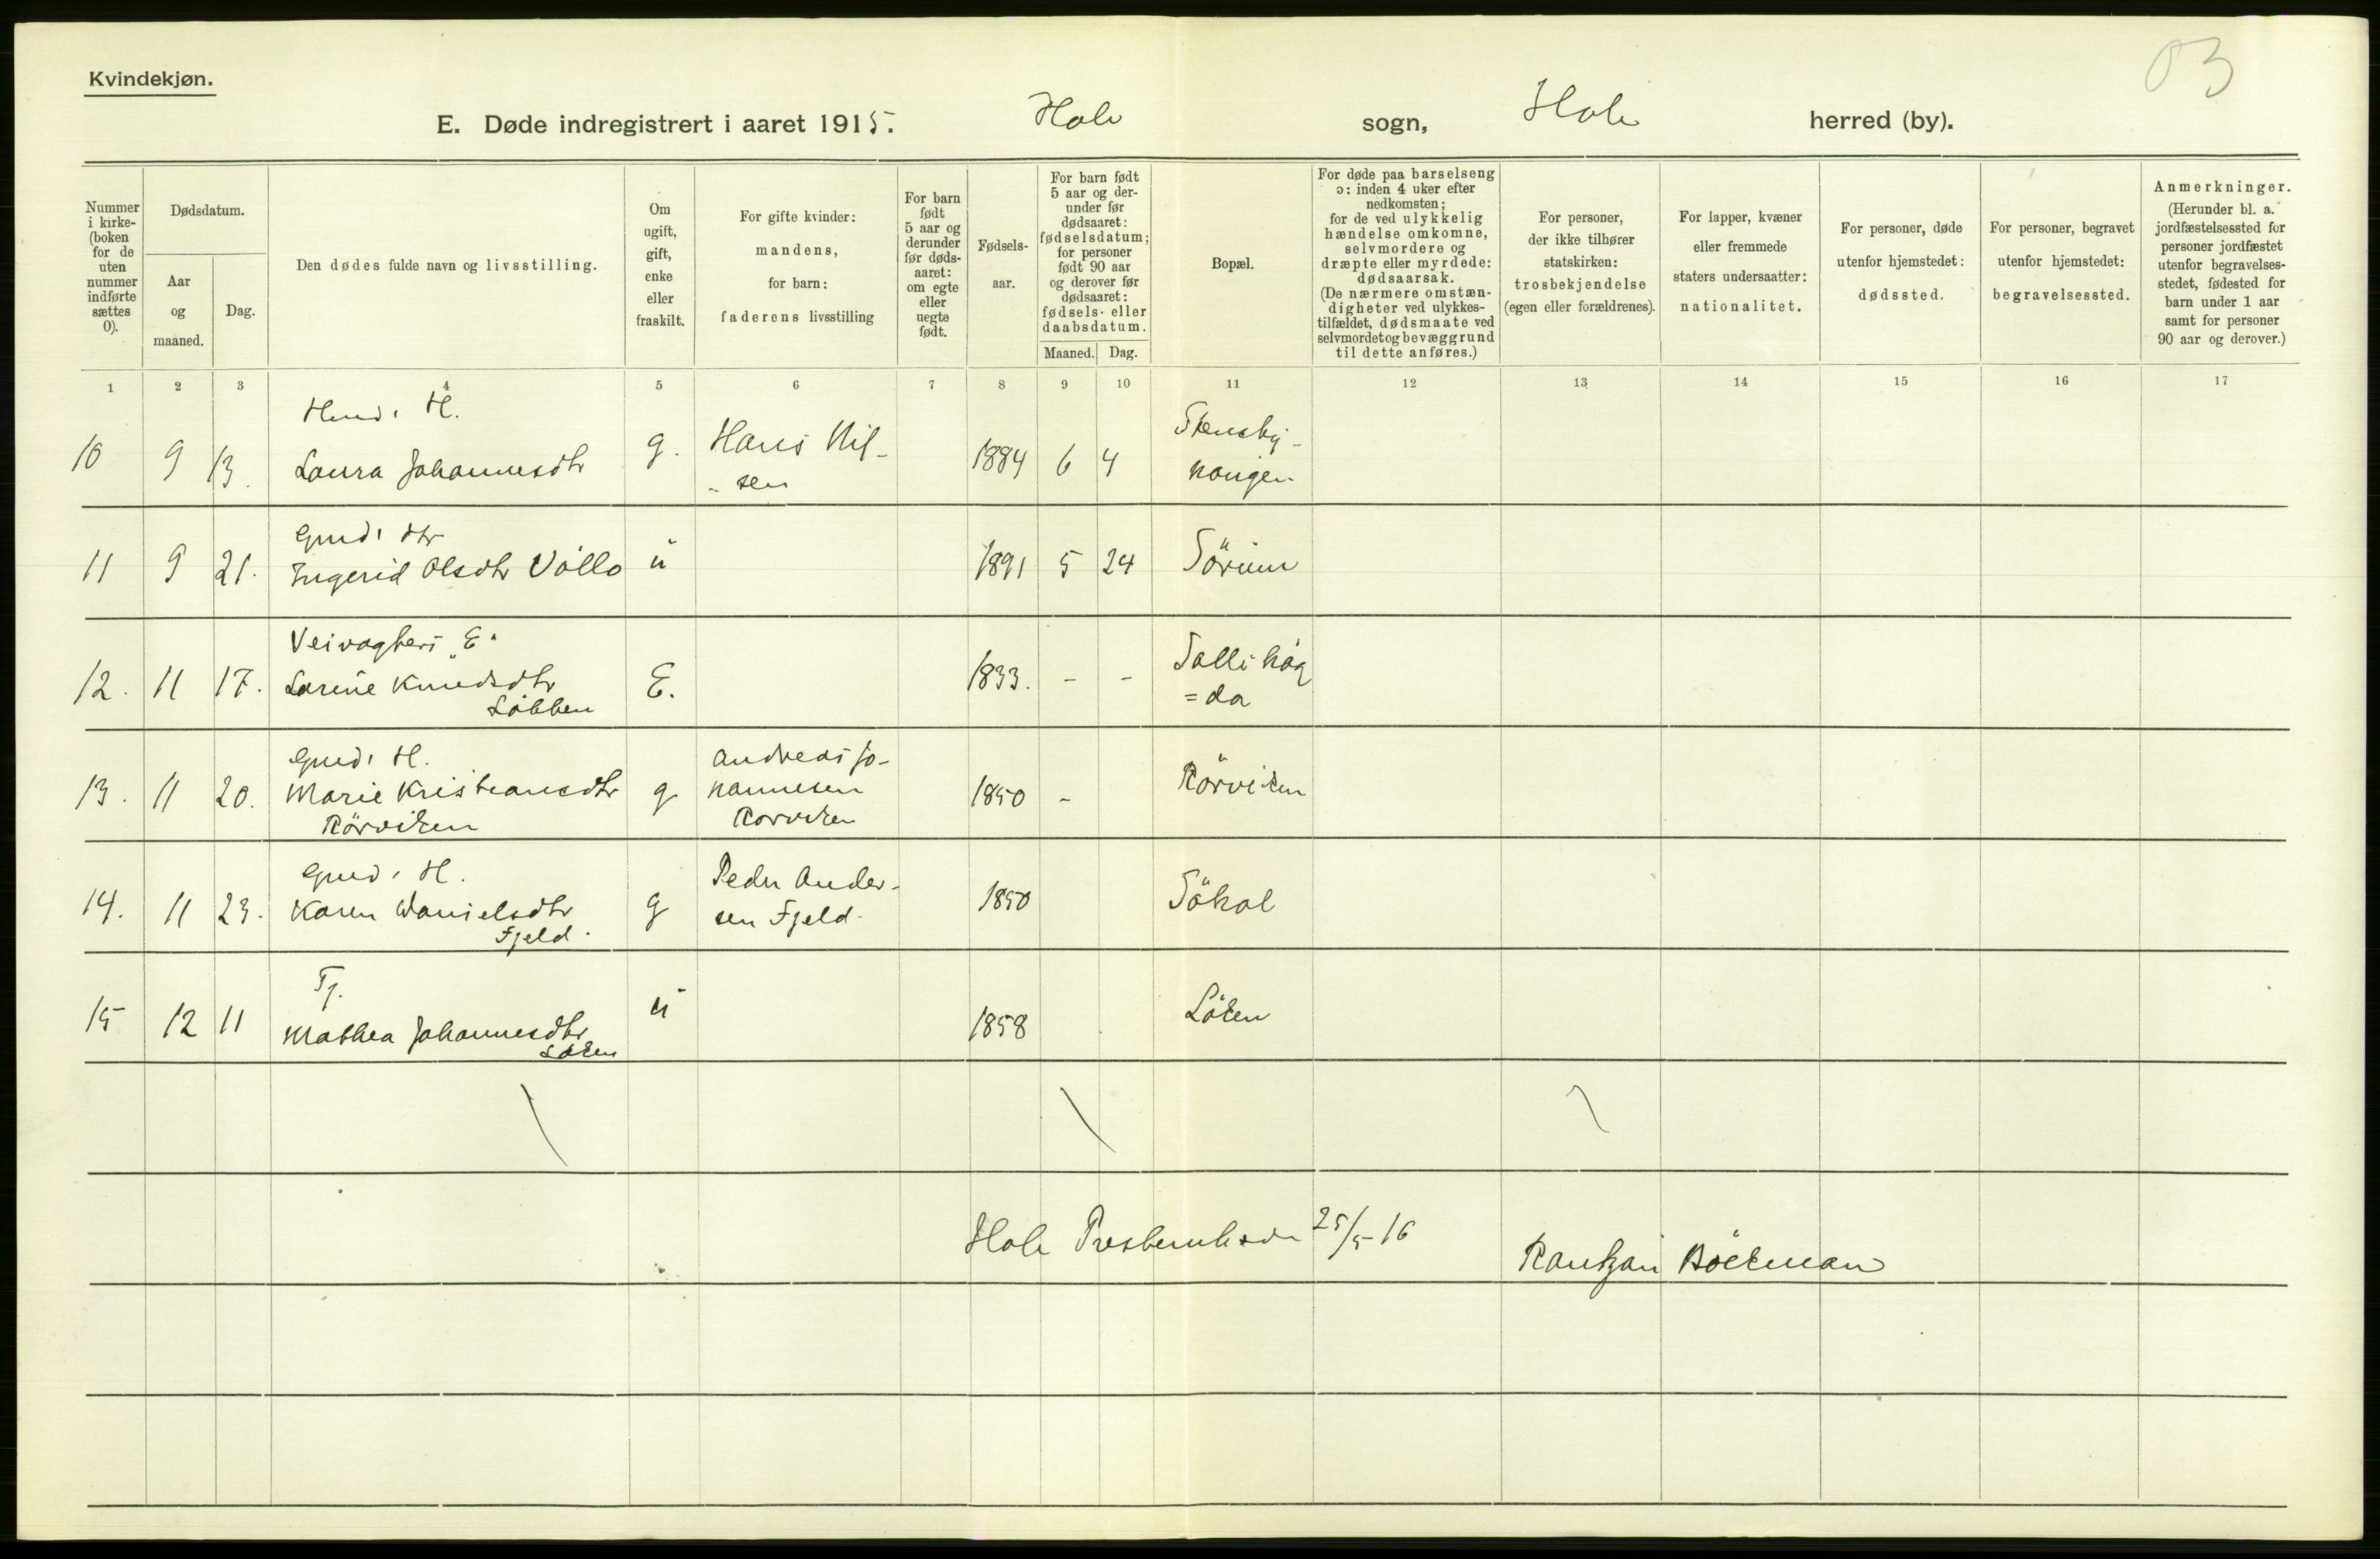 03
Kvindekjøn.
E. Døde indregistrert i aaret 1915. Hole sogn, Hole herred (by).
Nummer
i kirke-
(boken
for de
uten
nummer
indførte
sættes
0).
Dødsdatum.
Aar
og
maaned.
Dag.
Den dødes fulde navn og livsstilling.
Om
ugift,
gift,
enke
eller
fraskilt.
For gifte kvinder:
mandens,
for barn:
faderens livsstilling
For barn
født
5 aar og
derunder
før døds-
aaret:
om egte
eller
uegte
født.
Fødsels-
aar.
For barn født
5 aar og der-
under før
dødsaaret:
fødselsdatum;
for personer
født 90 aar
og derover før
dødsaaret:
fødsels- eller
daabsdatum.
Maaned. Dag.
Bopæl.
For døde paa barselseng
ɔ: inden 4 uker efter
nedkomsten;
for de ved ulykkelig
hændelse omkomne,
selvmordere og
dræpte eller myrdede:
dødsaarsak.
(De nærmere omstæn-
digheter ved ulykkes-
tilfældet, dødsmaate ved
selvmordet og bevæggrund
til dette anføres.)
For personer,
der ikke tilhører
statskirken:
trosbekjendelse
(egen eller forældrenes).
For lapper, kvæner
eller fremmede
staters undersaatter:
nationalitet.
For personer, døde
utenfor hjemstedet:
dødssted.
For personer, begravet
utenfor hjemstedet:
begravelsessted.
Anmerkninger.
(Herunder bl. a.
jordfæstelsessted for
personer jordfæstet
utenfor begravelses-
stedet, fødested for
barn under 1 aar
samt for personer
90 aar og derover.)
1 2 3 4 5 6 7 8 9 10 11 12 13 14 15 16 17
H.
10 9 13. Laura Johannesdtr g. Hans Nil-
- sen 1884 6 4 Stensby-
haugen
Gmd. dtr
11 9 21. Ingerid Olsdtr Vøllo u 1891 5 24 Sörum
E.
12. 11 17. Lorene Knudsdtr
Løbben E. 1833. - - Sollihög
=da
Gmd. H.
13. 11 20. Marie Kristiansdtr
Rörviken g Andreas Jo-
hannesen
Rörviken 1850 - Rörviken
Gmd. H.
14. 11 23. Karen Danielsdtr
Fjeld. g Peder Ander-
sen Fjeld. 1850 Söhol
Tj.
15 12 11 Mathea Johannesdtr
Løken u 1858 Løken
Hole 25/5-16